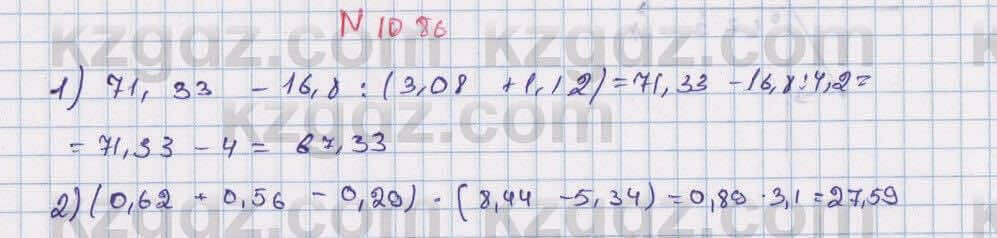 N 1086
1) 71,33 - 16,8 : (3,08 + 1,12) = 71,33 - 16,8 : 4,2 =
= 71,33 - 4 = 67,33
2) (0,62 + 0,56 - 0,29) · (8,44 - 5,34) = 0,89 · 3,1 = 27,59
kzgdz.com